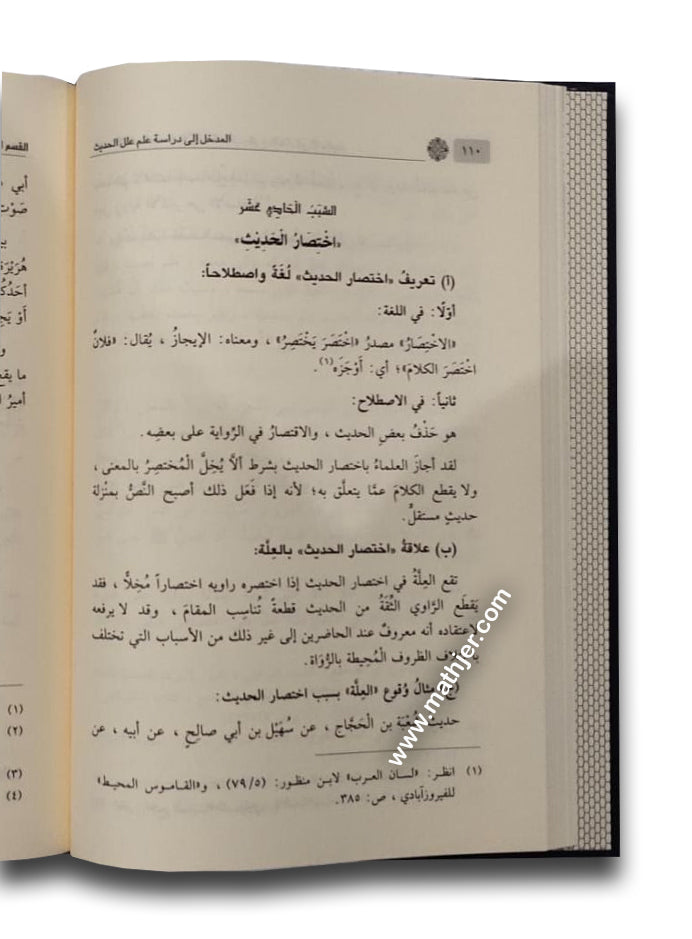 ١١٠
المدخل إلى دراسة علم علل الحديث
السَّبَبُ الْحَادِي عَشَر
«اخْتِصَارُ الْحَدِيْثِ»
(أ) تعريفُ «اختصار الحديث» لُغَةً واصطلاحاً:
أوّلًا: في اللغة:
«الاخْتِصَارُ» مصدرُ «اخْتَصَرَ يَخْتَصِرُ» ، ومعناه: الإيجازُ ، يُقال: «فلانٌ
اخْتَصَرَ الكلامَ»؛ أي: أَوْجَزَه(١).
ثانياً: في الاصطلاح:
هو حَذْفُ بعضِ الحديث ، والاقتصارُ في الرِّواية على بعضِه.
لقد أجازَ العلماءُ باختصار الحديث بشرط ألاَّ يُخِلَّ الْمُختصِرُ بالمعنى ،
ولا يقطع الكلامَ عمَّا يتعلَّق به؛ لأنه إذا فَعَل ذلك أصبح النَّصُّ بمنْزلة
حديثٍ مستقلٍّ.
(ب) علاقةُ «اختصار الحديث» بالعِلَّة:
تقع العِلَّةُ في اختصار الحديث إذا اختصره راويه اختصاراً مُخِلًّا ، فقد
يَقطَع الرَّاوي الثِّقَةُ من الحديث قطعةً تُناسِب المقامَ ، وقد لا يرفعه
لاعتقاده أنه معروفٌ عند الحاضرين إلى غير ذلك من الأسباب التي تختلف
الظروف الْمُحِيطة بالرُّوَاة.
مثالُ وُقوع «العِلَّة» بسبب اختصار الحديث:
حديث شُعْبَة بن الْحَجَّاج ، عن سُهَيْل بن أبي صالحٍ ، عن أبيه ، عن
(١) انظر: «لسان العرب» لابن منظور: (٧٩/٥) ، و«القاموس المحيط»
للفيروزآبادي ، ص: ٣٨٥.
www.mathjer.com
القسم
أبي
صَوْت
هُرَيْرَة
أَوْ
ما يقع
أميرُ
(١)
(٢)
(٣)
(٤)